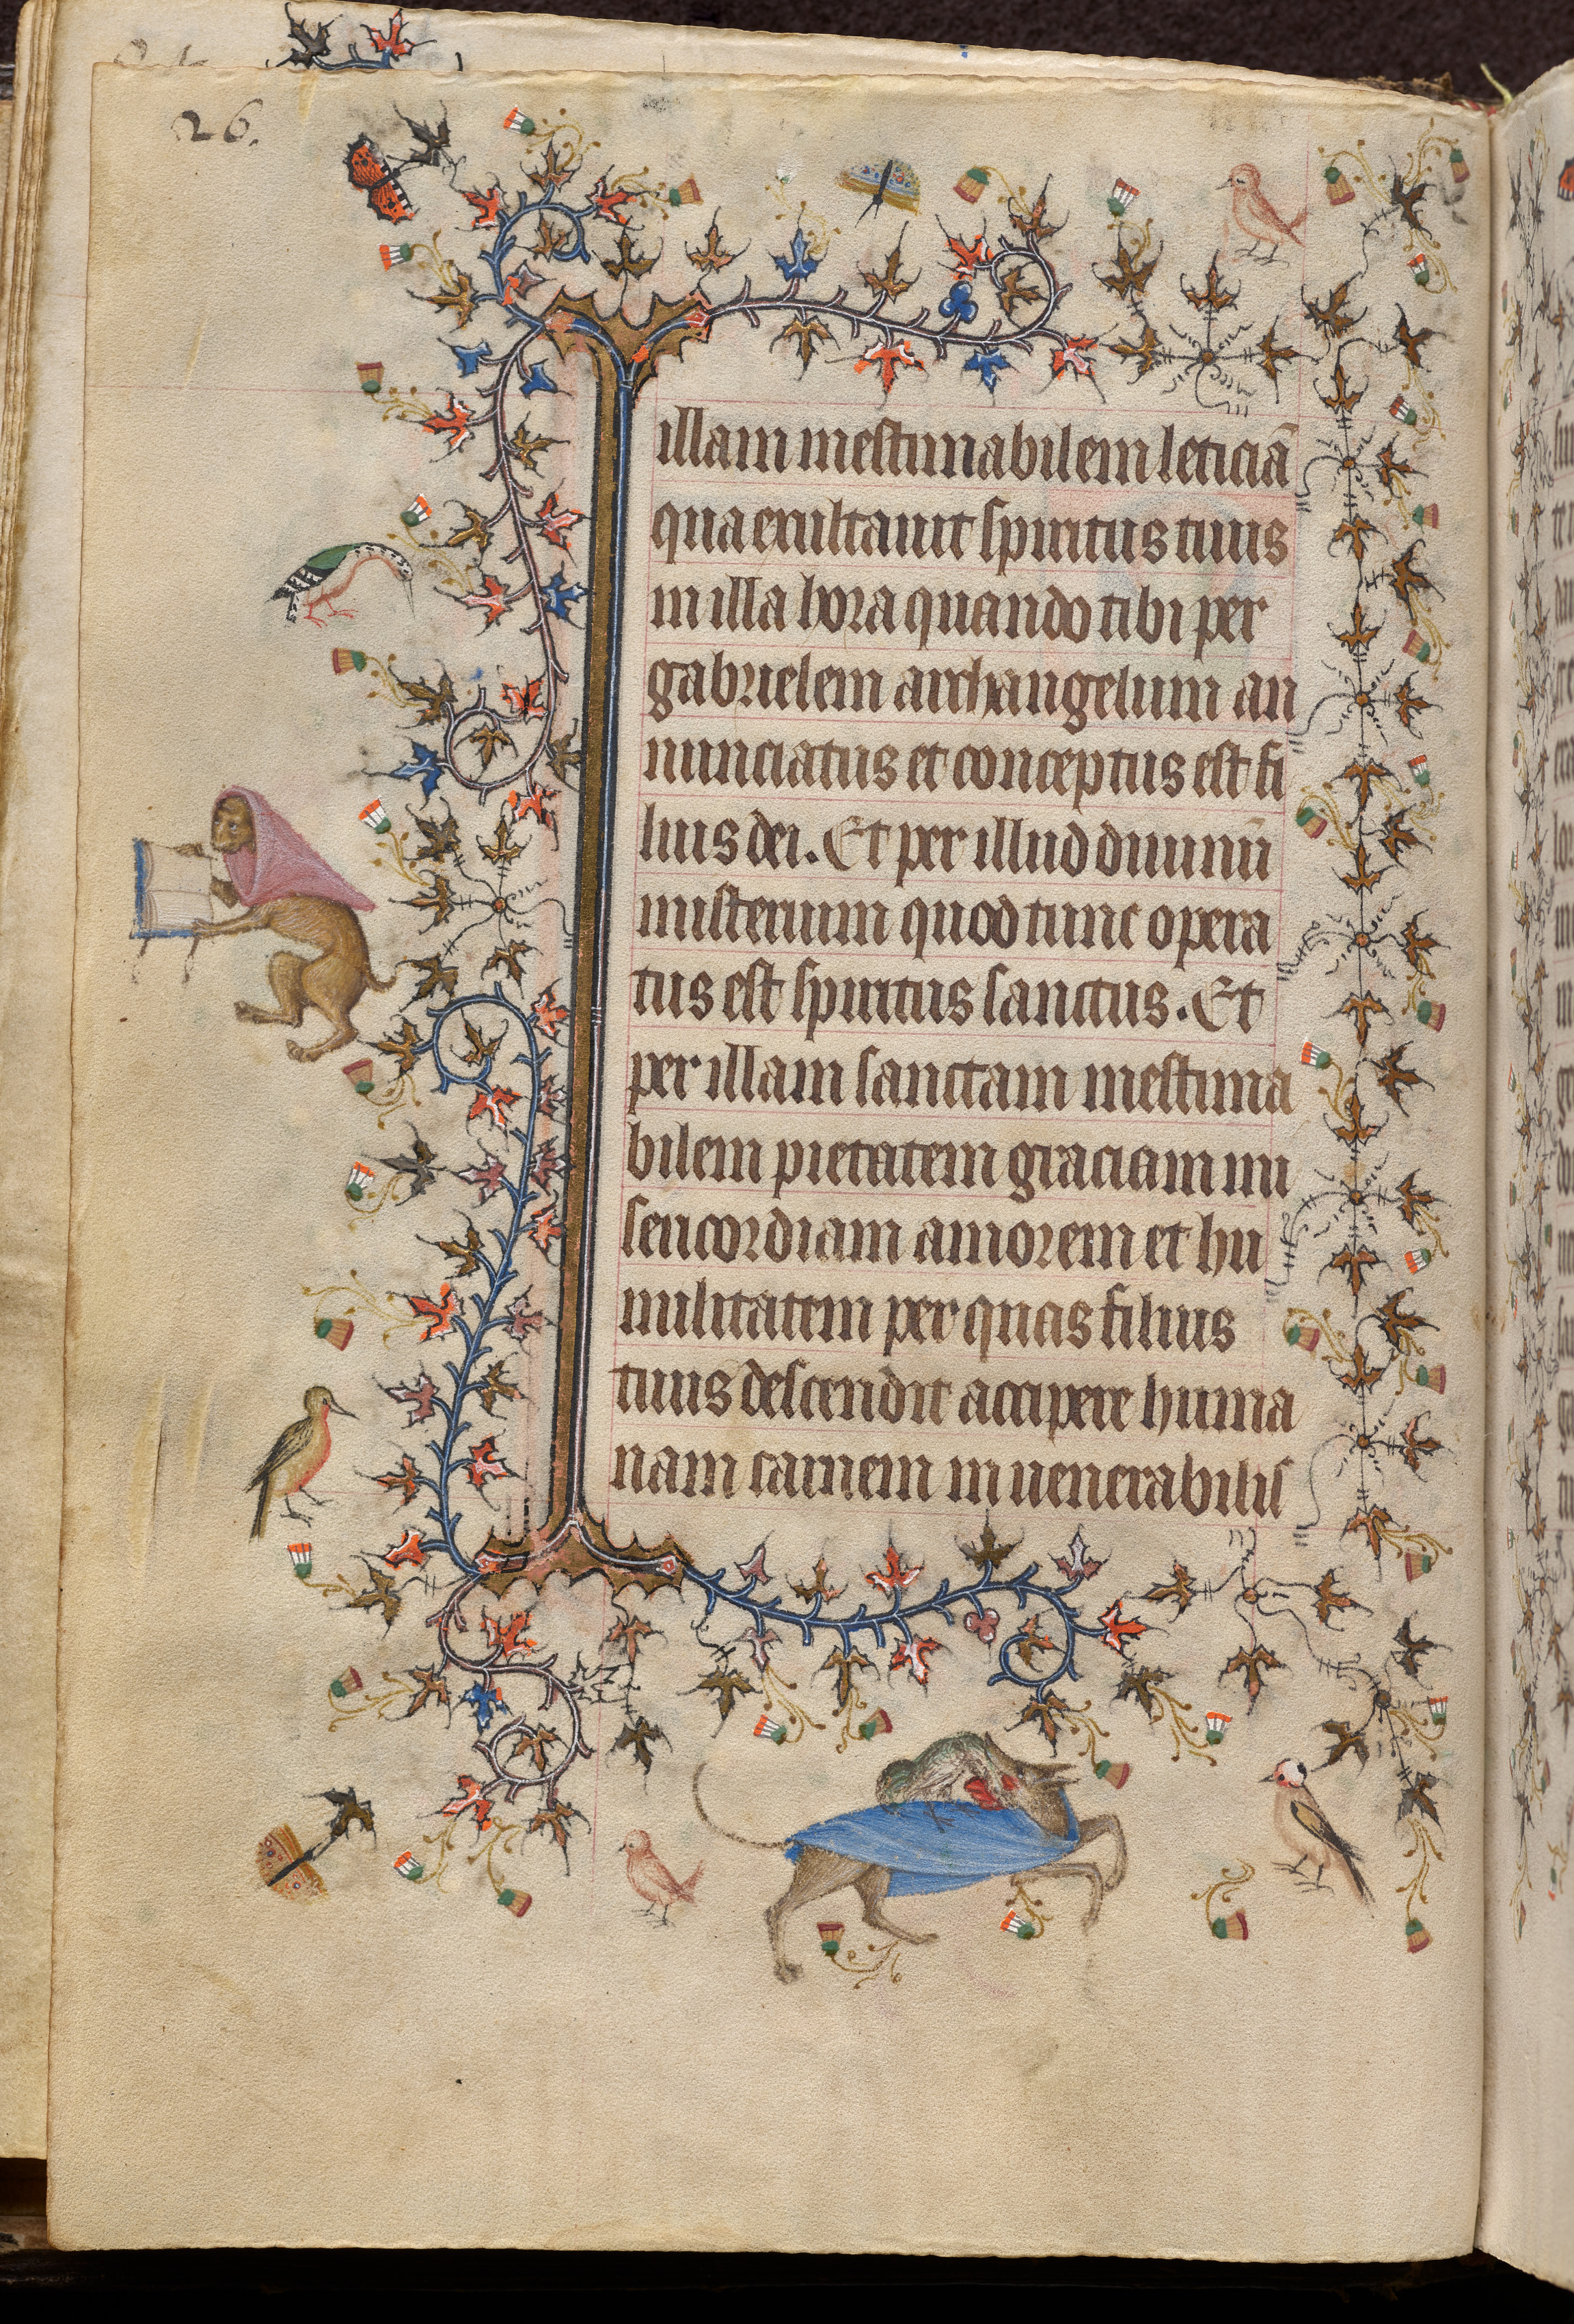 26.
illam inestimabilem leticiā
qua exultauit spiritus tuus
in illa hora quando tibi per
gabrielem archangelum an
nunciatus et conceptus est fi
lius dei. Et per illud diuinū
misterium quod tunc opera
tus est spiritus sanctus. Et
per illam sanctam inestima
bilem pietatem graciam mi
sericordiam amorem et hu
militatem per quas filius
tuus descendit accipere huma
nam carnem in uenerabilis